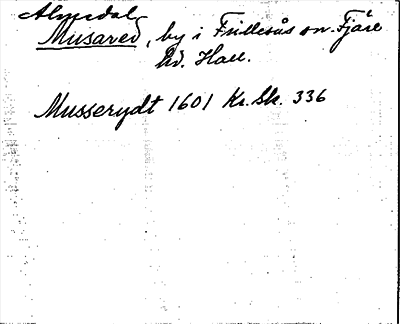 Almedal
Musared, by i Frillesås sn. Fjäre
hd. Hall.
Musserydt 1601 Kr. Sk. 336